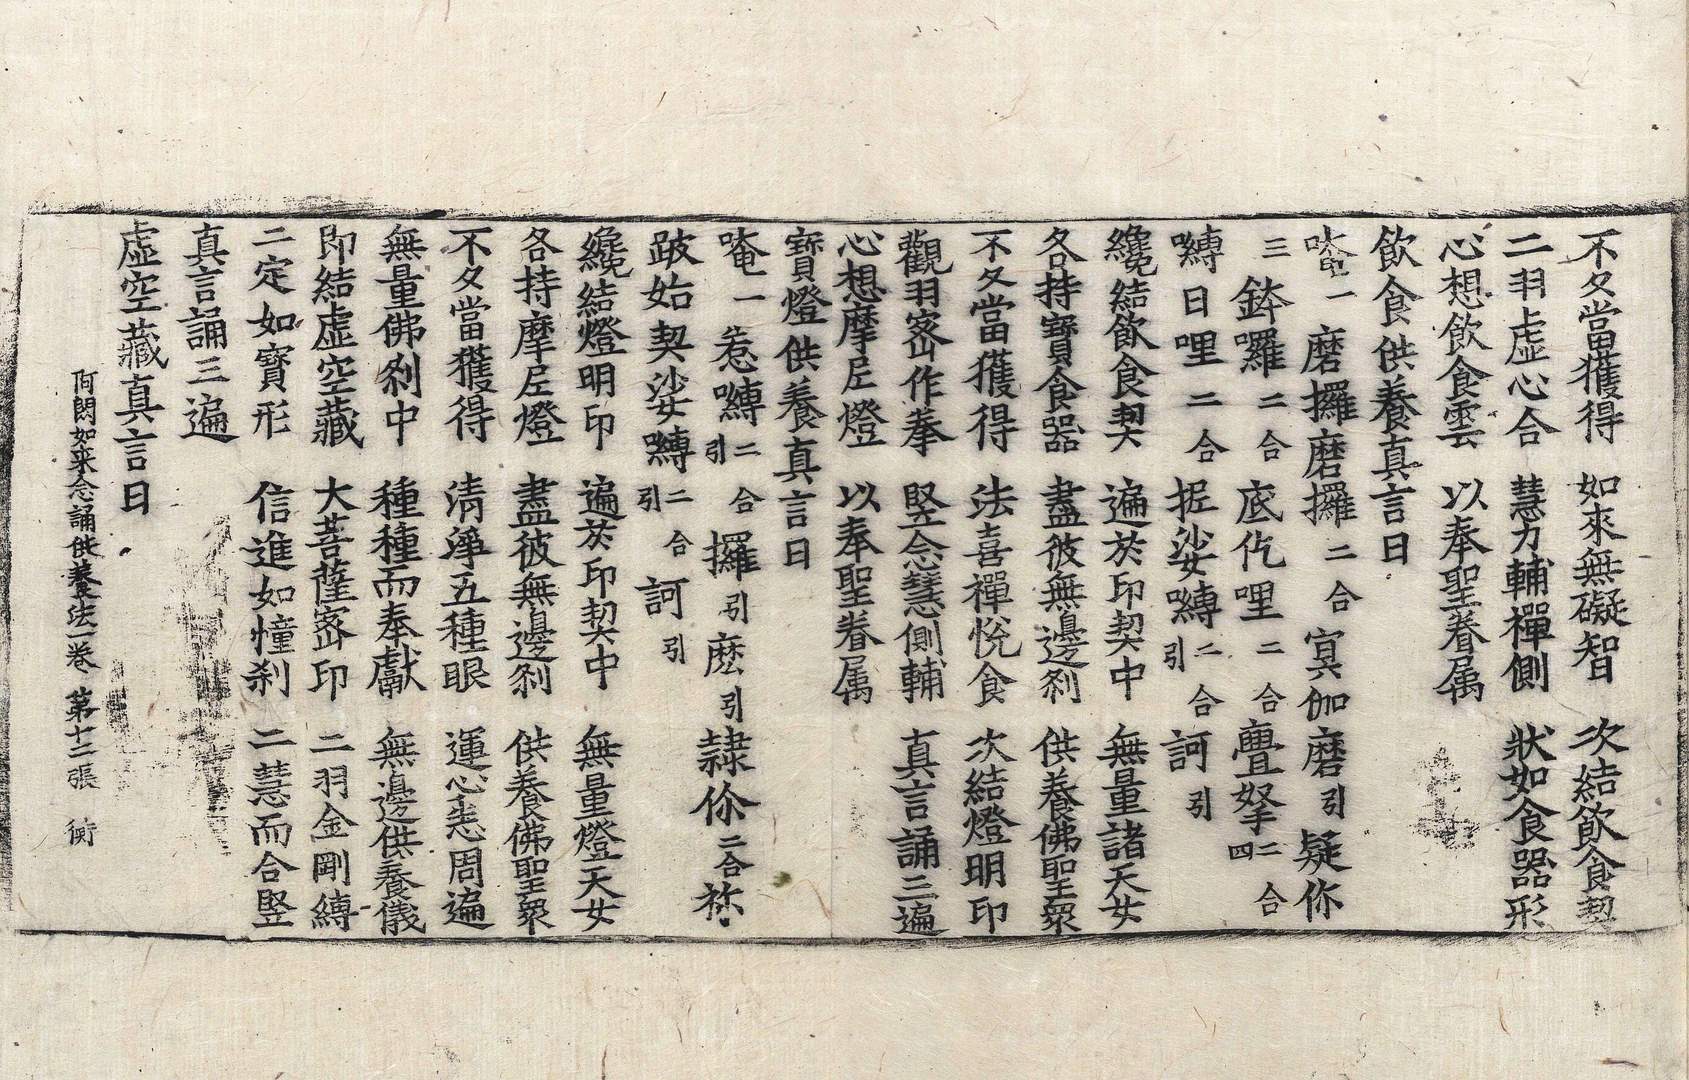 不久當獲得　如來無礙智　次結飲食契
二羽虛心合　慧力輔禪側　狀如食器形
心想飲食雲　以奉聖眷属
飲食供養真言曰
唵一磨攞磨攞二合冥伽磨引疑你
三鉢囉二合底仡哩二合疊拏二合四
嚩日哩二合抳娑嚩二合引訶引
纔結飲食契　遍於印契中　無量諸天女
各持寶食器　盡彼無邊剎　供養佛聖眾
不久當獲得　法喜禪悅食　次結燈明印
觀羽密作拳　竪忍慧側輔　真言誦三遍
心想摩尼燈　以奉聖眷属
寶燈供養真言曰
唵一惹嚩二合引攞引麽引隸你二合祢
跛始契娑嚩二合引訶引
纔結燈明印　遍於印契中　無量燈天女
各持摩尼燈　盡彼無邊剎　供養佛聖眾
不久當獲得　清淨五種眼　運心悉周遍
無量佛剎中　種種而奉獻　無邊供養儀
即結虛空藏　大菩薩密印　二羽金剛縛
二定如寶形　信進如幢剎　二慧而合竪
真言誦三遍
虛空藏真言曰
阿閦如来念誦供養法一卷　第十二張　衡